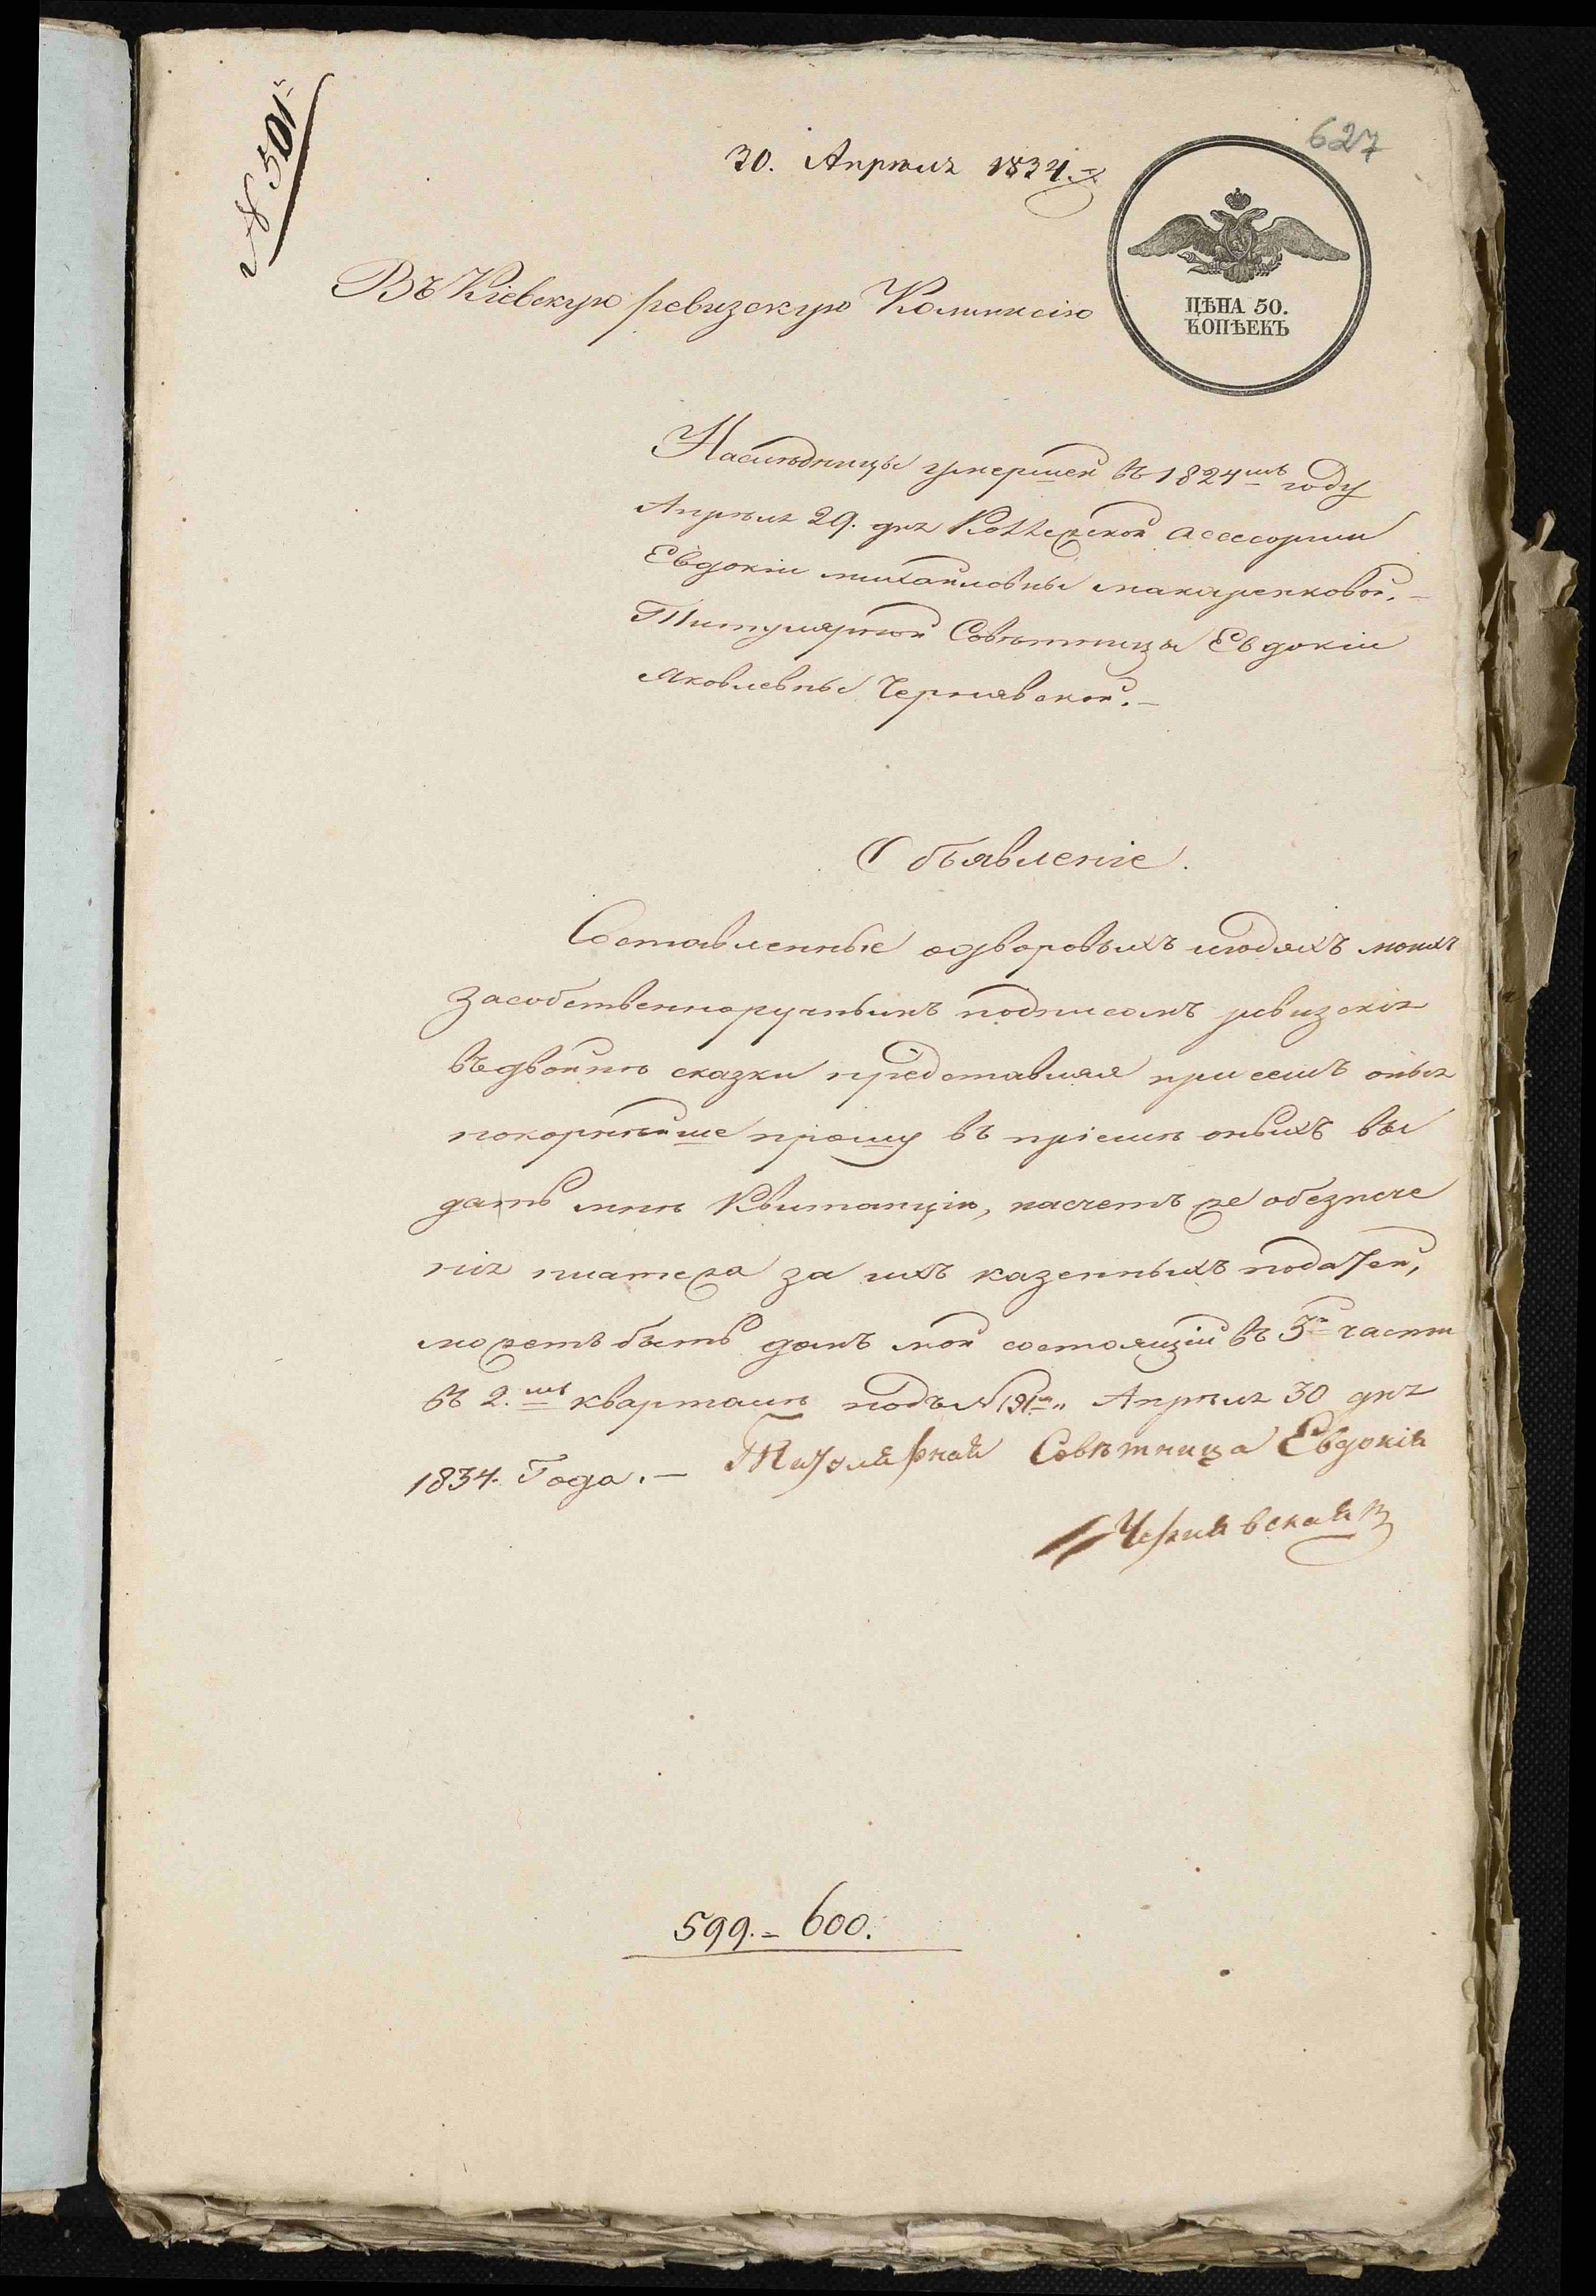 № 501.
627
30. Апрѣля 1834.
ЦѢНА 50.
КОПѢЕКЪ
Въ Кіевскую ревизскую Коммисію
Наслѣдницы умершей въ 1824мъ году
Апрѣля 29. дня Коллежской ассесорши
Евдокіи михайловны макаренковой.—
Титулярной Совѣтницы Евдокіи
Яковлевны Чернявской.—
Объявленіе.
Составленные одворовыхъ людяхъ моихъ
засобственноручнымъ подписомъ ревизскія
въдвойнѣ сказки представляя присемъ оныя
покорнѣйше прошу въ пріемѣ оныхъ вы
дать мнѣ Квитанцію, насчетъ же обезпече
нія платежа за ихъ казенныхъ податей,
можетъ быть домъ мой состоящій въ 3й части
въ 2.мъ кварталѣ подъ № Апрѣля 30 дня
1834. Года.— Титулярная Совѣтница Евдокія
Чернявская
599.= 600.